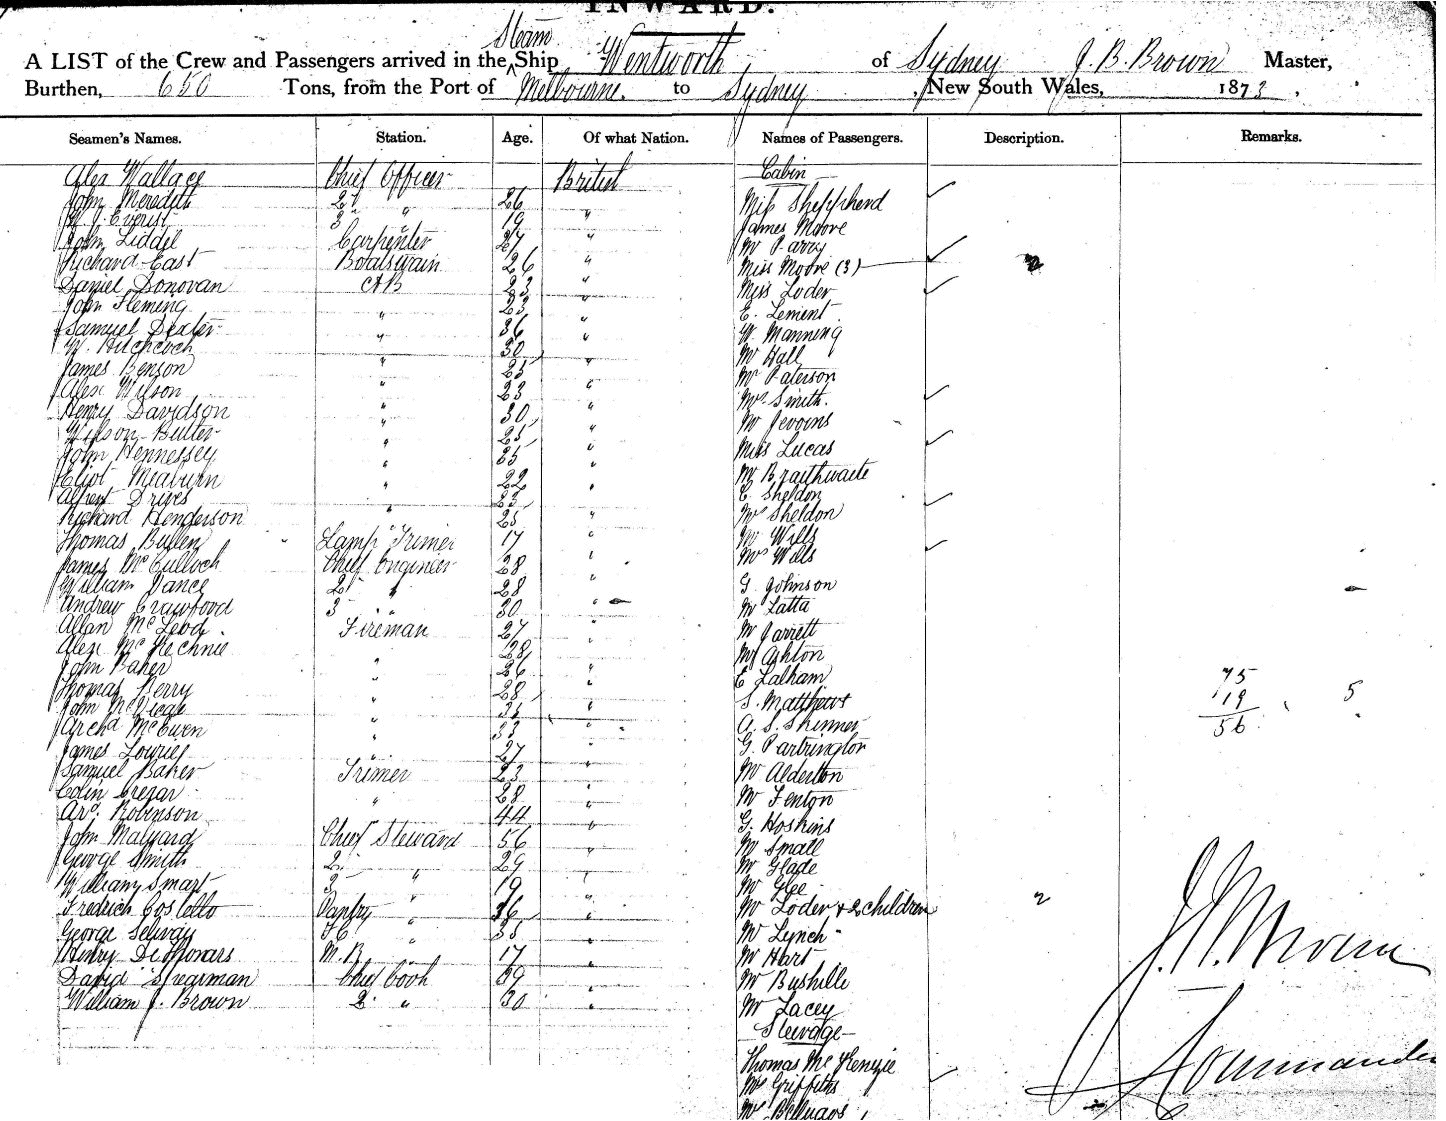 INWARD.
A LIST of the Crew and Passengers arrived in the Steam Ship Wentworth of Sydney J. B. Brown Master,
Burthen, 650 Tons, from the Port of Melbourne. to Sydney, New South Wales, 1873.
Seamen's Names. Station. Age. Of what Nation. Names of Passengers. Description. Remarks.
Alex Wallace Chief Officer British
John Meredith 2 " " 26 "
W. J. Everist 3 " 19 "
John Liddel Carpenter 27 "
Richard East Boatswain 26 "
Daniel Donovan AB 23 "
John Fleming " 23 "
Samuel Dexter " 36 "
W. Hitchcock " 30 "
James Benson " 25 "
Alex Wilson " 23 "
Henry Davidson " 30 "
Wilson Butler " 25 "
John Hennessey " 25 "
Eliot Meaburn " 22 "
Albert Drives " 23 "
Richard Henderson " 25 "
Thomas Bullen Lamp Trimer 17 "
James McCulloch Chief Engineer 28 "
William Vance 2 " 28 "
Andrew Crawfood 3 " 30 "
Allan McLeod Fireman 27 "
Alex McKechnie " 28 "
John Baker " 26 "
Thomas Berry " 28 "
John McVicar " 35 "
Archd McEwen " 33 "
James Lowrie " 27 "
Samuel Baker Trimer 23 "
Colin Cregar " 28 "
Robinson 44 "
John Malyard Chief Steward 56 "
George Smith 2 " 29 "
William Smart 3 " 19 "
Fredrich Costello Pantry " 16 "
George Selway " 35 "
Henry M.R. 17 "
David Spearman Chief Cook 39 "
William J. Brown 2 " 30 "
Cabin
Miss Shepherd
James Moore
Mr Parry
Miss Moore (3)
Miss Loder
E. Lement
W. Manning
Mr Hall
Mr Paterson
Mrs Smith.
Mr Jevoins
Miss Lucas
Mr Braithwaite
C. Sheldon
Mrs Sheldon
Mr Wills
Mrs Wills
G. Johnson
Mr Latta
Mr Jarrett
Mr Ashton
E Lalham
S. Matthews
A. S. Skinner
G. Partrington
Mr Alderton
Mr Fenton
G. Hoskins
Mr Small
Mr Glade
Mr Glee
Mr Loder & 2 children
Mr Lynch
Mr Hart
Mr Bushille
Mr Lacey
Steerage
Thomas McKenzie
Mrs Griffiths
75
19 5
56
Commander